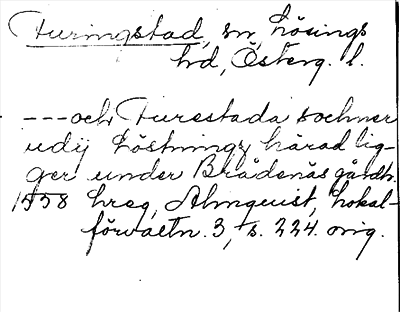 Furingstad, sn, Lösings
hd, Österg. l.
---och Furestada sochner
udij Löstningz härad lig-
ger under Brådenäs gårdh.
1558 hreg, Almquist, Lokal-
förvaltn. 3, s. 224. orig.